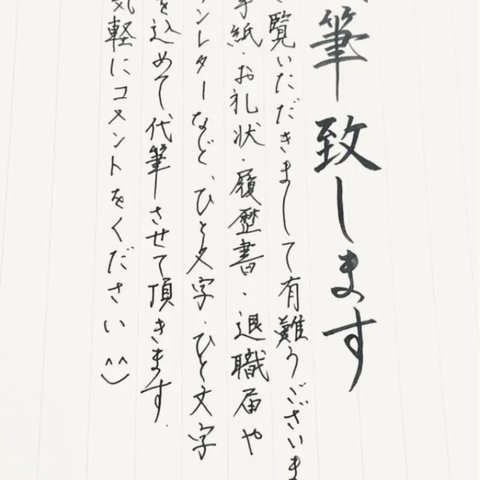 筆致します
覧いただきまして有難うございま
手紙・お礼状・履歴書・退職届や
ンレターなど、ひと文字・ひと文字
を込めて代筆させて頂きます.
気軽にコメントをください^^)